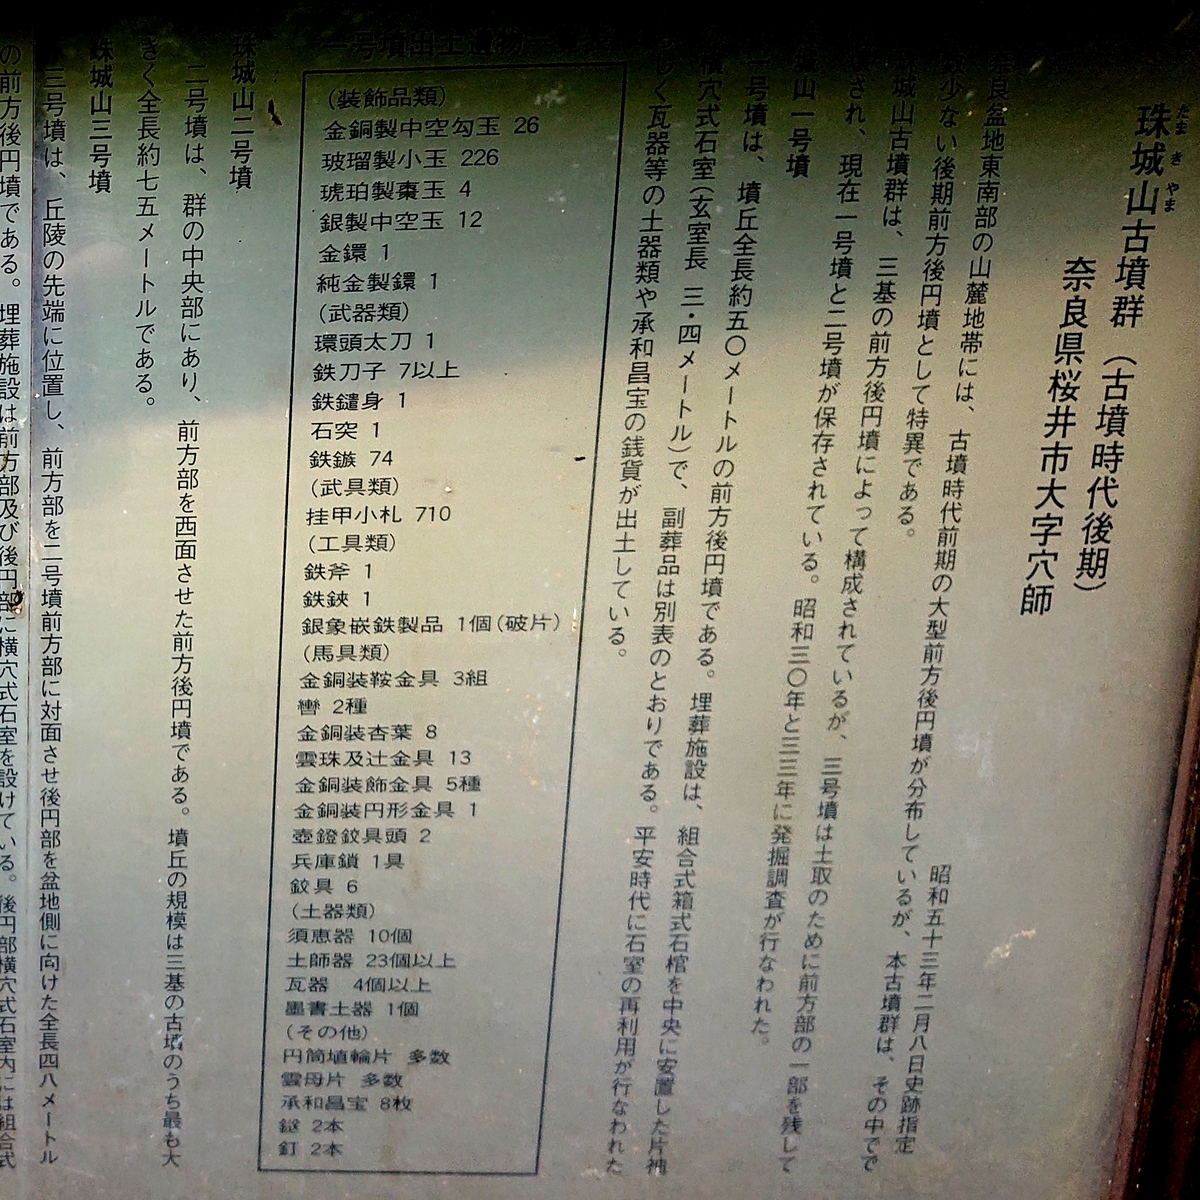 珠城山古墳群（古墳時代後期）
たまきやま
奈良県桜井市大字穴師
昭和五十三年二月八日史跡指定
良盆地東南部の山麓地帯には、古墳時代前期の大型前方後円墳が分布しているが、本古墳群は、その中でで
少ない後期前方後円墳として特異である。
城山古墳群は、三基の前方後円墳によって構成されているが、三号墳は土取のために前方部の一部を残して
され、現在一号墳と二号墳が保存されている。昭和三〇年と三三年に発掘調査が行なわれた。
山一号墳
一号墳は、墳丘全長約五〇メートルの前方後円墳である。埋葬施設は、組合式箱式石棺を中央に安置した片袖
横穴式石室（玄室長 三・四メートル）で、副葬品は別表のとおりである。平安時代に石室の再利用が行なわれた
しく瓦器等の土器類や承和昌宝の銭貨が出土している。
一号墳出土遺物一覧表
（装飾品類）
金銅製中空勾玉 26
玻瑠製小玉 226
琥珀製棗玉 4
銀製中空玉 12
金鐶 1
純金製鐶 1
（武器類）
環頭太刀 1
鉄刀子 7以上
鉄鑓身 1
石突 1
鉄鏃 74
（武具類）
挂甲小札 710
（工具類）
鉄斧 1
鉄鋏 1
銀象嵌鉄製品 1個（破片）
（馬具類）
金銅装鞍金具 3組
轡 2種
金銅装杏葉 8
雲珠及辻金具 13
金銅装飾金具 5種
金銅装円形金具 1
壺鐙鉸具頭 2
兵庫鎖 1具
鉸具 6
（土器類）
須恵器 10個
土師器 23個以上
瓦器 4個以上
墨書土器 1個
（その他）
円筒埴輪片 多数
雲母片 多数
承和昌宝 8枚
鎹 2本
釘 2本
珠城山二号墳
二号墳は、群の中央部にあり、前方部を西面させた前方後円墳である。墳丘の規模は三基の古墳のうち最も大
きく全長約七五メートルである。
珠城山三号墳
三号墳は、丘陵の先端に位置し、前方部を二号墳前方部に対面させ後円部を盆地側に向けた全長四八メートル
の前方後円墳である。埋葬施設は前方部及び後円部に横穴式石室を設けている。後円部横穴式石室内には組合式